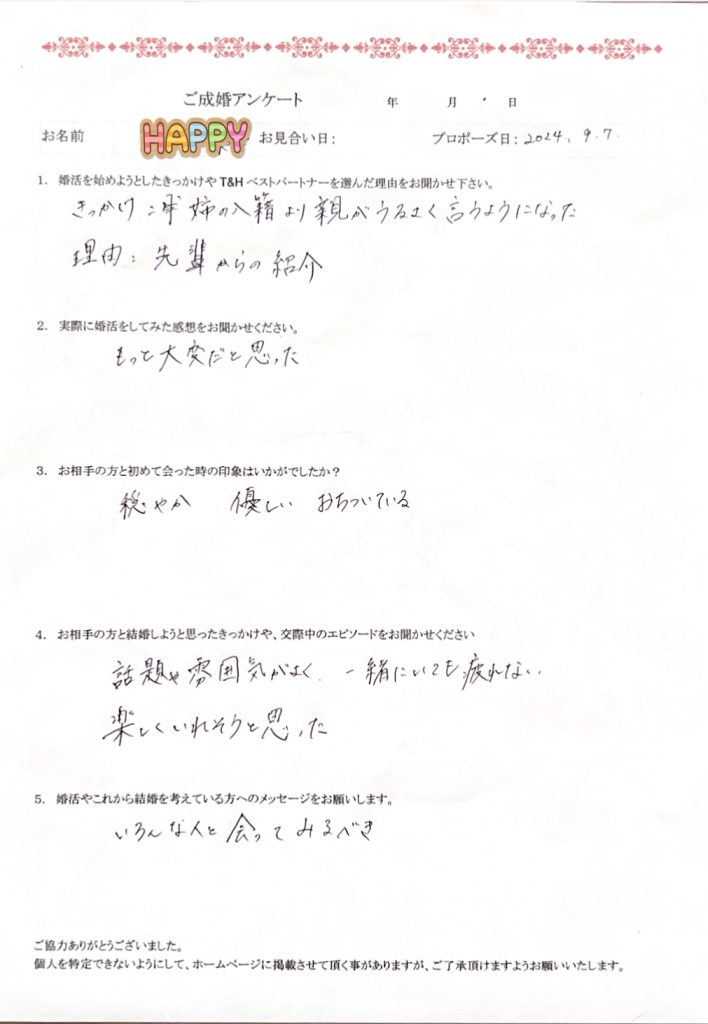 ご成婚アンケート 年 月 日
お名前 HAPPY お見合い日: プロポーズ日: 2024. 9.7.
1. 婚活を始めようとしたきっかけや T&H ベストパートナーを選んだ理由をお聞かせ下さい。
きっかけ : 姉の入籍より親がうるさく言うようになった
理由: 先輩からの紹介
2. 実際に婚活をしてみた感想をお聞かせください。
もっと大変だと思った
3. お相手の方と初めて会った時の印象はいかがでしたか?
穏やか 優しい おちついている
4. お相手の方と結婚しようと思ったきっかけや、交際中のエピソードをお聞かせください
話題や雰囲気がよく、一緒にいても疲れない
楽しくいれそうと思った
5. 婚活やこれから結婚を考えている方へのメッセージをお願いします。
いろんな人と会ってみるべき
ご協力ありがとうございました。
個人を特定できないようにして、ホームページに掲載させて頂く事がありますが、ご了承頂けますようお願いいたします。